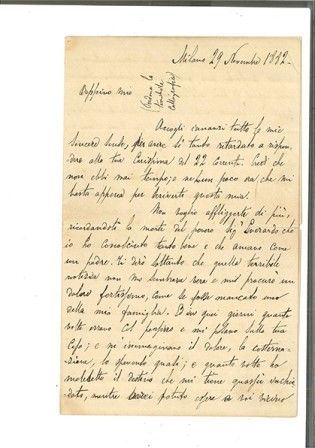 Milano 29 Novembre 1892.
Peppino mio
(Scusa la
terribile
calligrafia)
Accogli innanzi tutto le mie
sincere scuse, per aver sì tanto ritardato a rispon
dere alla tua Carissima del 22 Corrente. Credi che
non ebbi mai tempo; e nessun poco ora che mi
basta appena per scriverti questa mia.
Non voglio affliggerti di più,
ricordandoti la morte del povero Sigr che
io ho conosciuto tanto bene e che amavo come
un padre. Ti dirò soltanto che quella terribile
notizia non mi sembrava vera e mi procurò un
dolore fortissimo, come se fosse mancato uno
della mia famiglia. E in quei giorni quante
volte errano Col pensiero e mi pareva dalla tua
Casa; e mi immaginavo il dolore, la costerna-
zione, lo spavento quali; e quante volte ho
maledetto il destino che mi tiene quassù
mentre avrei potuto essere a voi vicino